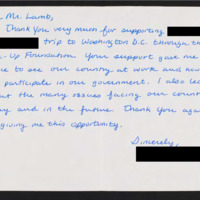 Mr. Lamb,
Thank you very much for supporting
trip to Washington D.C. through the
-Up Foundation. Your support gave me
to see our country at work and how
participate in our government. I also
the many issues facing our country
and in the future. Thank you again
giving me this opportunity.
Sincerely,